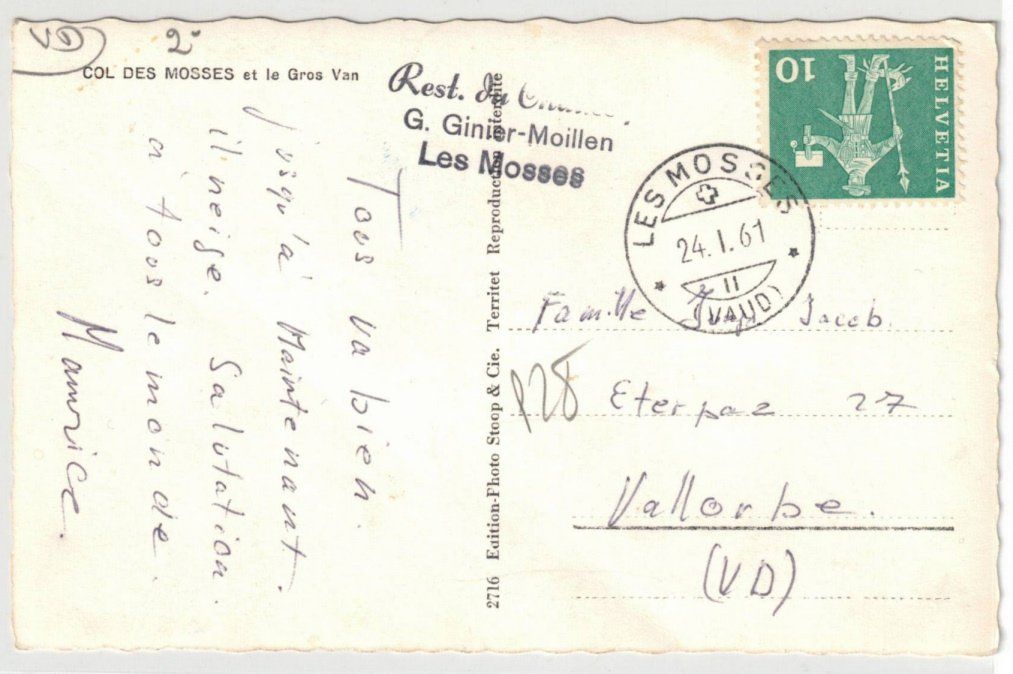 VD
2.-
COL DES MOSSES et le Gros Van
Rest. du
G. Ginier-Moillen
Les Mosses
Tous va bien.
jusqu'à Maintenant.
il neige. Salutation.
a tous le monde.
Maurice.
2716 Edition-Photo Stoop & Cie. Territet Reproduction interdite
HELVETIA
10
LES MOSSES
24.I.61
11
(VAUD)
Famille Jacob.
P28
Eterpaz 27
Vallorbe.
(VD)